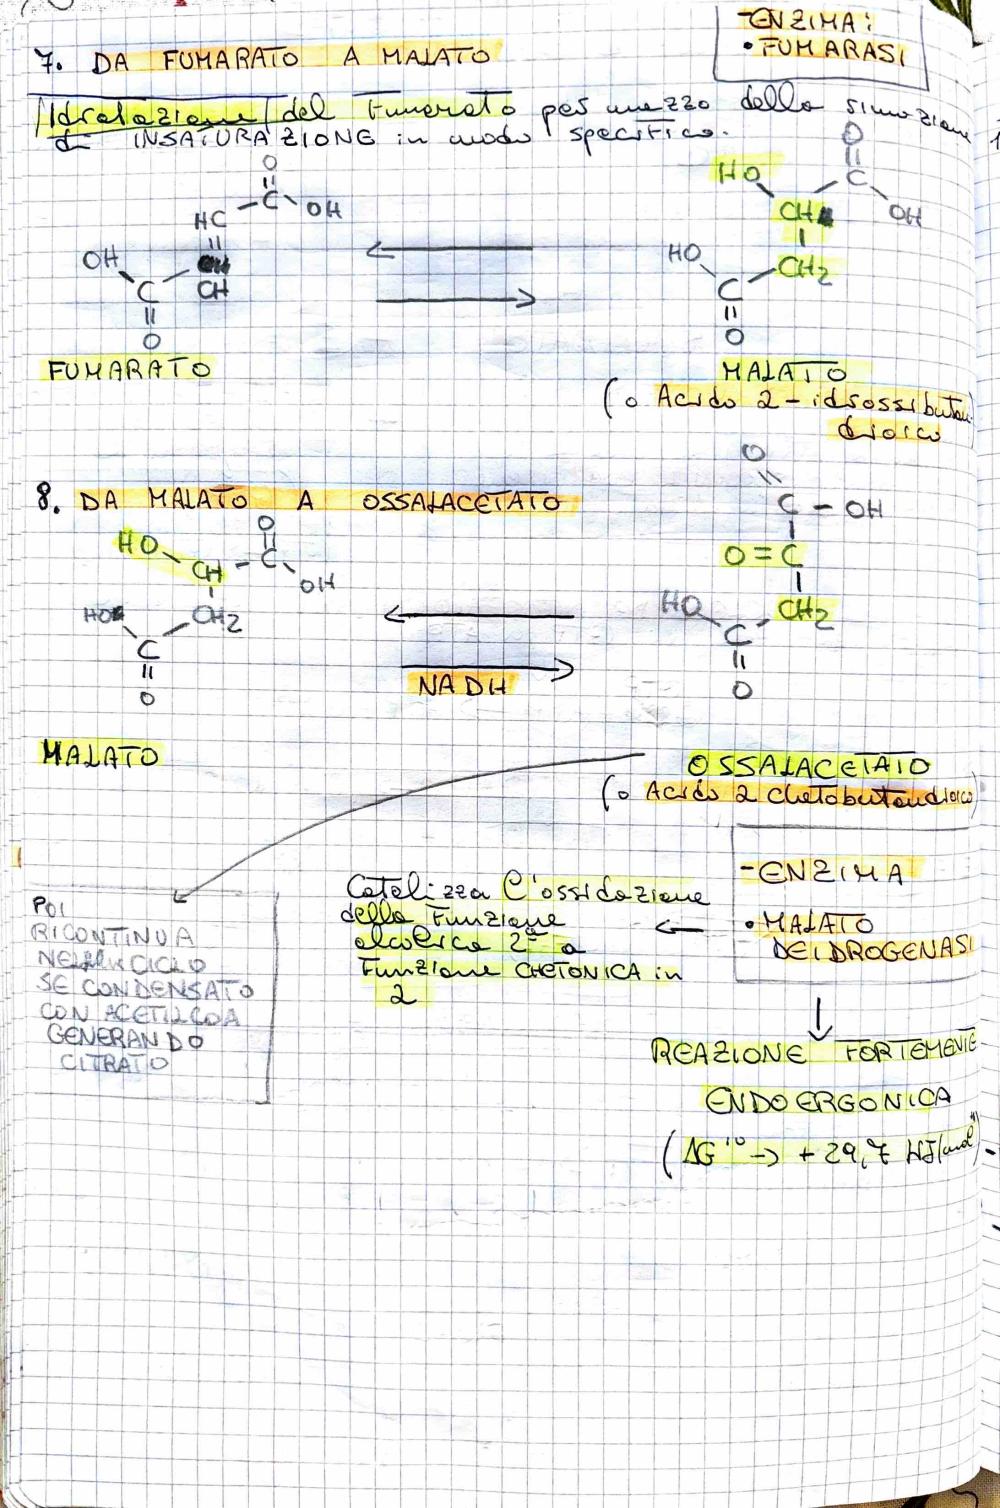 -ENZIMA:
• FUMARASI
7. DA FUMARATO A MALATO
Idratazione del Fumarato per mezzo della
di INSATURAZIONE in modo specifico.
O
C
HC
OH
OH
CH
C
O
FUMARATO
O
HO
C
CH
OH
HO
CH2
C
O
MALATO
(o Acido 2-idrossibutan
dioico
8. DA MALATO A OSSALACETATO
O
HO
CH - C
OH
HO
CH2
C
O
MALATO
NADH
O
C - OH
O=C
HO
CH2
C
O
OSSALACETATO
(o Acido 2 chetobutandioico)
-ENZIMA
• MALATO
DEIDROGENASI
Catalizza l'ossidazione
della Funzione
alcolica 2ª a
Funzione CHETONICA in
2
POI
RICONTINUA
CICLO
SE CONDENSATO
CON ACETILCOA
GENERANDO
CITRATO
REAZIONE FORTEMENTE
ENDOERGONICA
(ΔG'° → + 29,7 KJ/mol)